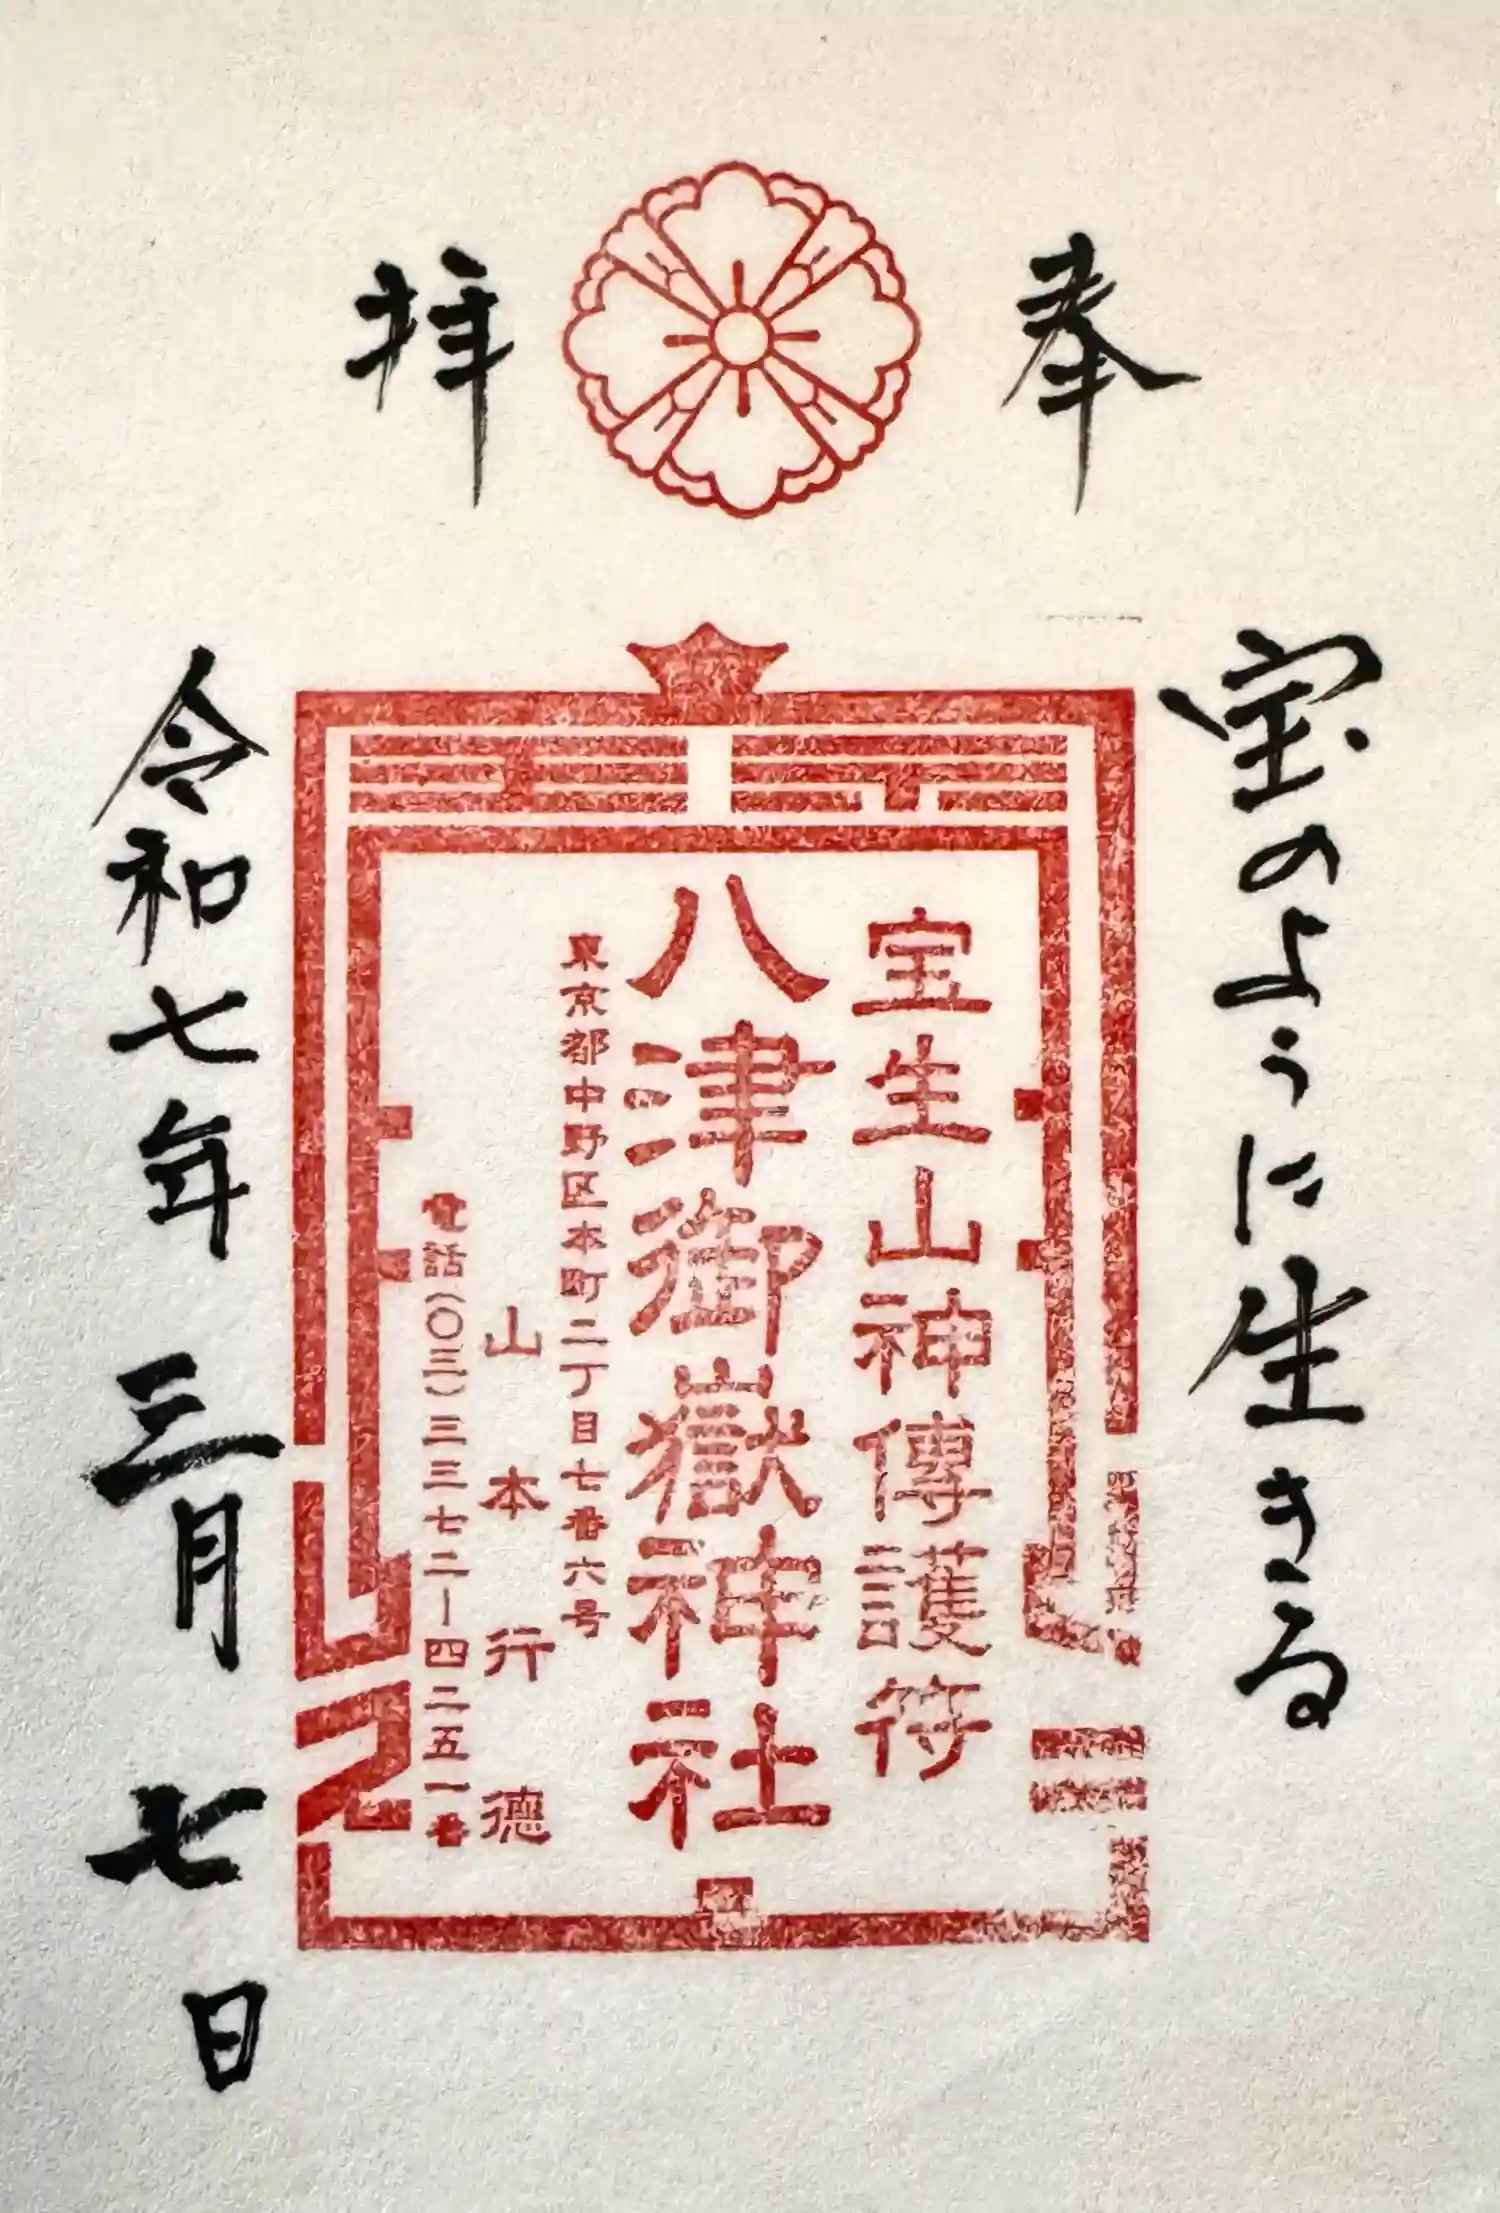 奉拝
宝のように生きる
宝生山神傳護符
八津御嶽神社
東京都中野区本町二丁目七番六号
山本行德
電話(〇三)三三七二ー四二五一番
令和七年三月七日